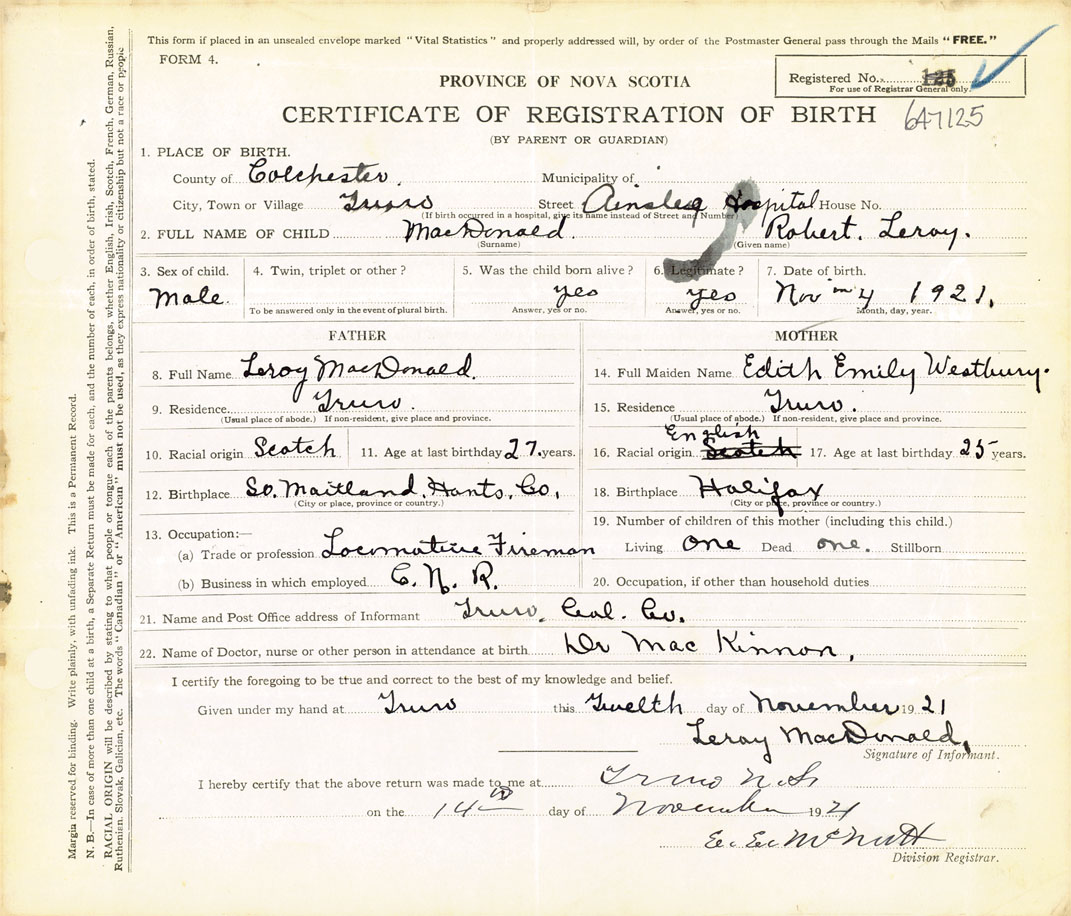 This form if placed in an unsealed envelope marked "Vital Statistics" and properly addressed will, by order of the Postmaster General pass through the Mails "FREE."
FORM 4.
Registered No. 125
For use of Registrar General only.
647125
PROVINCE OF NOVA SCOTIA
CERTIFICATE OF REGISTRATION OF BIRTH
(BY PARENT OR GUARDIAN)
1. PLACE OF BIRTH.
County of Colchester. Municipality of
City, Town or Village Truro Street Ainslea Hospital House No.
(If birth occurred in a hospital, give its name instead of Street and Number)
2. FULL NAME OF CHILD MacDonald. Robert. Leroy.
(Surname) (Given name)
3. Sex of child. 4. Twin, triplet or other? 5. Was the child born alive? 6. Legitimate? 7. Date of birth.
Male. yes yes Nov 4 1921.
To be answered only in the event of plural birth. Answer, yes or no. Answer, yes or no. Month, day, year.
FATHER MOTHER
8. Full Name Leroy MacDonald. 14. Full Maiden Name Edith Emily Westbury.
9. Residence Truro. 15. Residence Truro.
(Usual place of abode.) If non-resident, give place and province. (Usual place of abode.) If non-resident, give place and province.
English
10. Racial origin Scotch 11. Age at last birthday 27. years. 16. Racial origin Scotch 17. Age at last birthday 25 years.
12. Birthplace So. Maitland, Hants, Co, 18. Birthplace Halifax
(City or place, province or country.) (City or place, province or country.)
13. Occupation:— 19. Number of children of this mother (including this child.)
(a) Trade or profession Locomotive Fireman Living one Dead one. Stillborn
(b) Business in which employed C. N. R. 20. Occupation, if other than household duties
21. Name and Post Office address of Informant Truro, Col. Co.
22. Name of Doctor, nurse or other person in attendance at birth Dr Mac Kinnon,
I certify the foregoing to be true and correct to the best of my knowledge and belief.
Given under my hand at Truro this Twelth day of November 1921
Leroy MacDonald,
Signature of Informant.
I hereby certify that the above return was made to me at Truro N.S.
on the 14th day of November 1921
E. E. McNutt
Division Registrar.
Margin reserved for binding. Write plainly, with unfading ink. This is a Permanent Record.
N. B.—In case of more than one child at a birth, a Separate Return must be made for each, and the number of each, in order of birth, stated.
RACIAL ORIGIN will be described by stating to what people or tongue each of the parents belongs, whether English, Irish, Scotch, French, German, Russian,
Ruthenian, Slovak, Galician, etc. The words "Canadian" or "American" must not be used, as they express nationality or citizenship but not a race or people